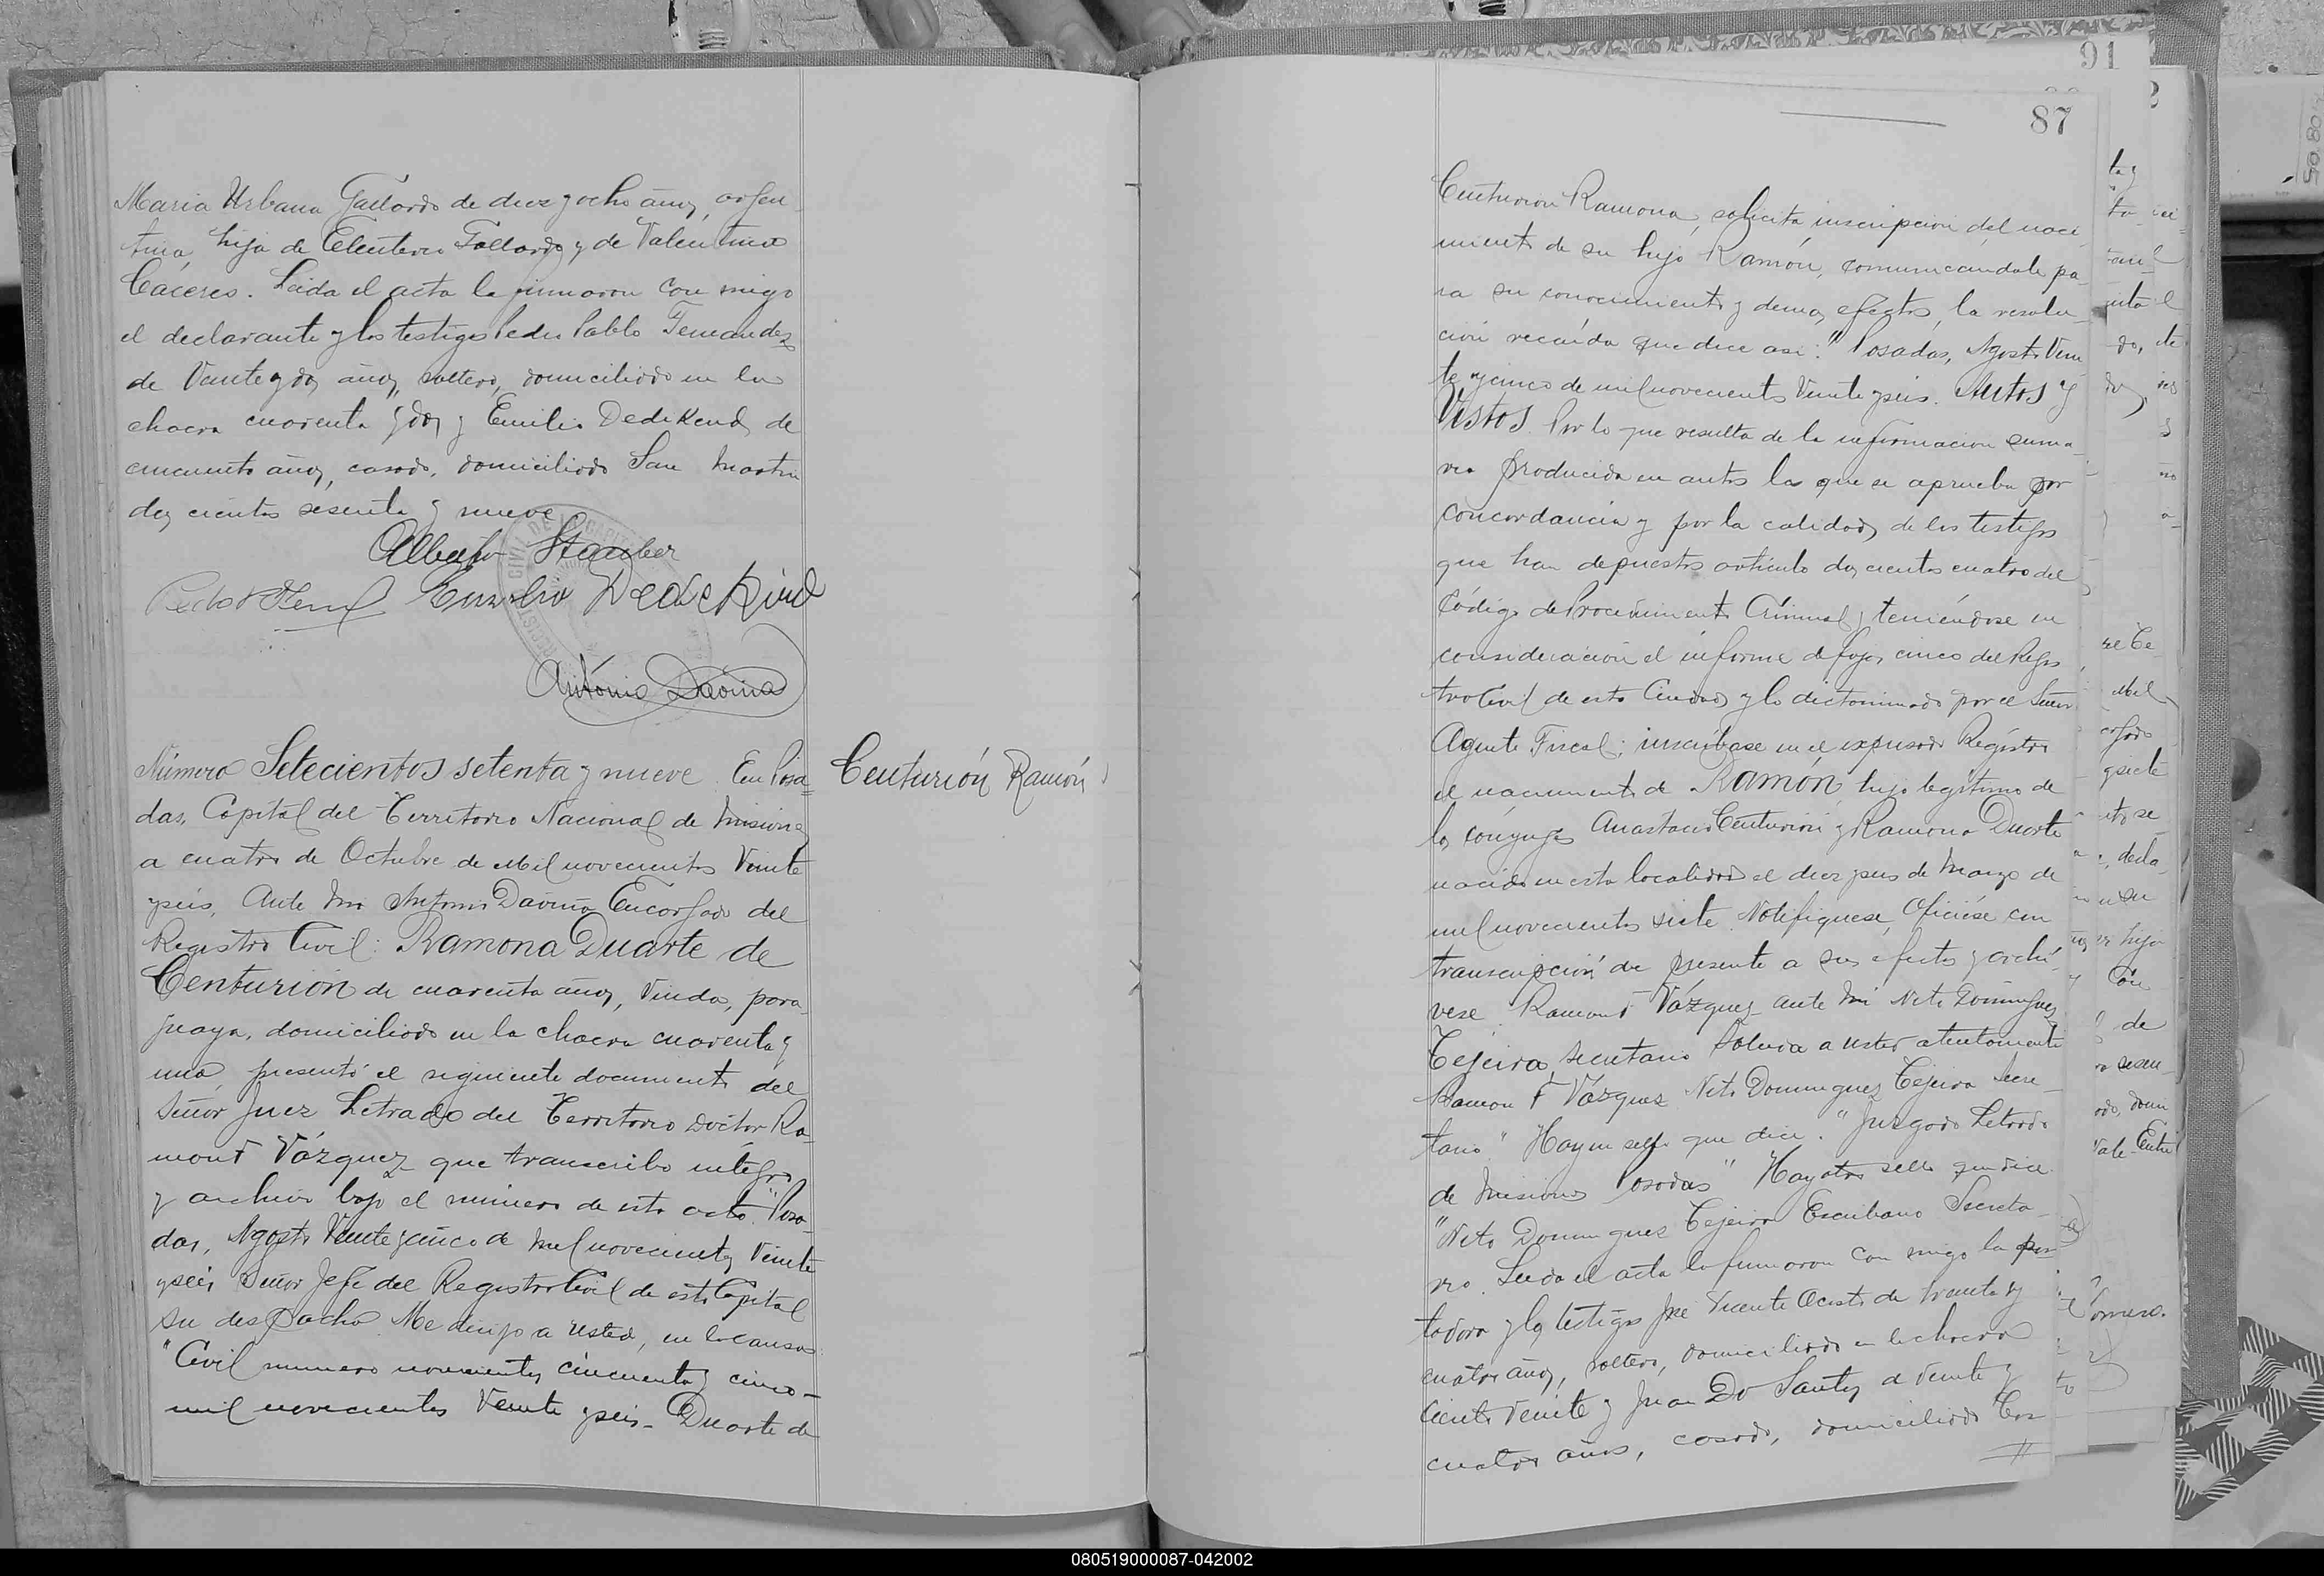 Maria Urbana Gallardo de diez y ocho años, argen-
tina, hija de Eleuterio Gallardo y de Valentina
Cáceres. Leida el acta la firmaron con migo
el declarante y los testigos Pedro Pablo Fernandez
de Veinte y dos años, soltero, domiciliado en la
chacra cuarenta y dos y Emilio Dedekend, de
cincuenta años, casado, domiciliado San Martin
dos cientos sesenta y nueve
Alberto Stauber
Emilio Dedekind
Antonio Daviña
Número Setecientos setenta y nueve. En Posa-
Centurión Ramón
das, Capital del Territorio Nacional de Misiones
a cuatro de Octubre de Mil novecientos Veinte
y seis, Ante Mi Antonio Daviña Encargado del
Registro Civil: Ramona Duarte de
Centurión de cuarenta años, Viuda, para-
guaya, domiciliado en la chacra cuarenta y
una, presentó el siguiente documento del
Señor Juez Letrado del Territorio Doctor Ra-
mon F Vázquez que transcribo integro
y archivo bajo el número de esta acta. "Posa-
das, Agosto Veinte y cinco de mil novecientos Veinte
y seis Señor Jefe del Registro Civil de esta Capital
Su despacho. Me dirijo a Usted, en la causa
"Civil numero novecientos cincuenta y cinco-
mil novecientos Veinte y seis- Duarte de
91
87
Centurion Ramona, solicita inscripción del naci-
miento de su hijo Ramón, comunicandole pa-
ra su conocimiento y demas efectos, la resolu-
ción recaída que dice asi: "Posadas, Agosto Vein-
te y cinco de mil novecientos Veinte y seis. Autos y
Vistos Por lo que resulta de la informacion suma-
ria producida en autos la que se aprueba por
concordancia y por la calidad de los testigos
que han depuesto artículo dos cientos cuatro del
Código de Procedimiento Criminal, teniéndose en
consideración el informe de fojas cinco del Regis-
tro Civil de esta Ciudad y lo dictaminado por el Señor
Agente Fiscal: inscríbase en el expresado Registro
el nacimiento de Ramón, hijo legítimo de
los cónyuges Anastacio Centurión y Ramona Duarte
nacido en esta localidad el diez y seis de Marzo de
mil novecientos siete. Notifiquese, Oficiése con
transcripción de presente a sus efectos y archí-
vese. Ramon F Vázquez- ante Mi Neto Dominguez
Tejeira, Secretario Saluda a Usted atentamente
Ramon F Vázquez Neto Dominguez Tejeira Secre-
tario" Hay un sello que dice. "Juzgado Letrado
de Misiones Posadas" Hay otro sello que dice.
"Neto Dominguez Tejeira Escribano Secreta-
rio. Leida el acta la firmaron con migo la por-
tadora y los testigos José Vicente Acosta de treinta y
cuatro años, soltero, domiciliado en la chacra
Ciento Veinte y Juan Do Santos de Veinte y
cuatro años, casado, domiciliado
080519000087-042002